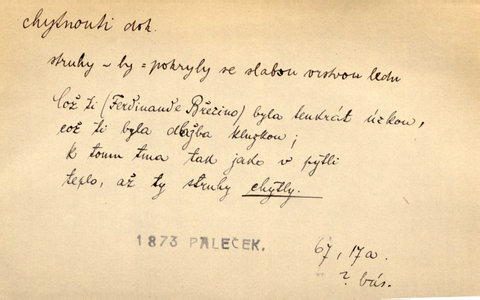 chytnouti dok.
struhy – by = pokryly se slabou vrstvou ledu
Což ti (Ferdinande Březino) byla tenkrát úzkou,
což ti byla dlažba kluzkou;
k tomu tma tak jako v pytli
teplo, až ty struhy chytly.
1873 PALEČEK.
67, 17a.
? bás.